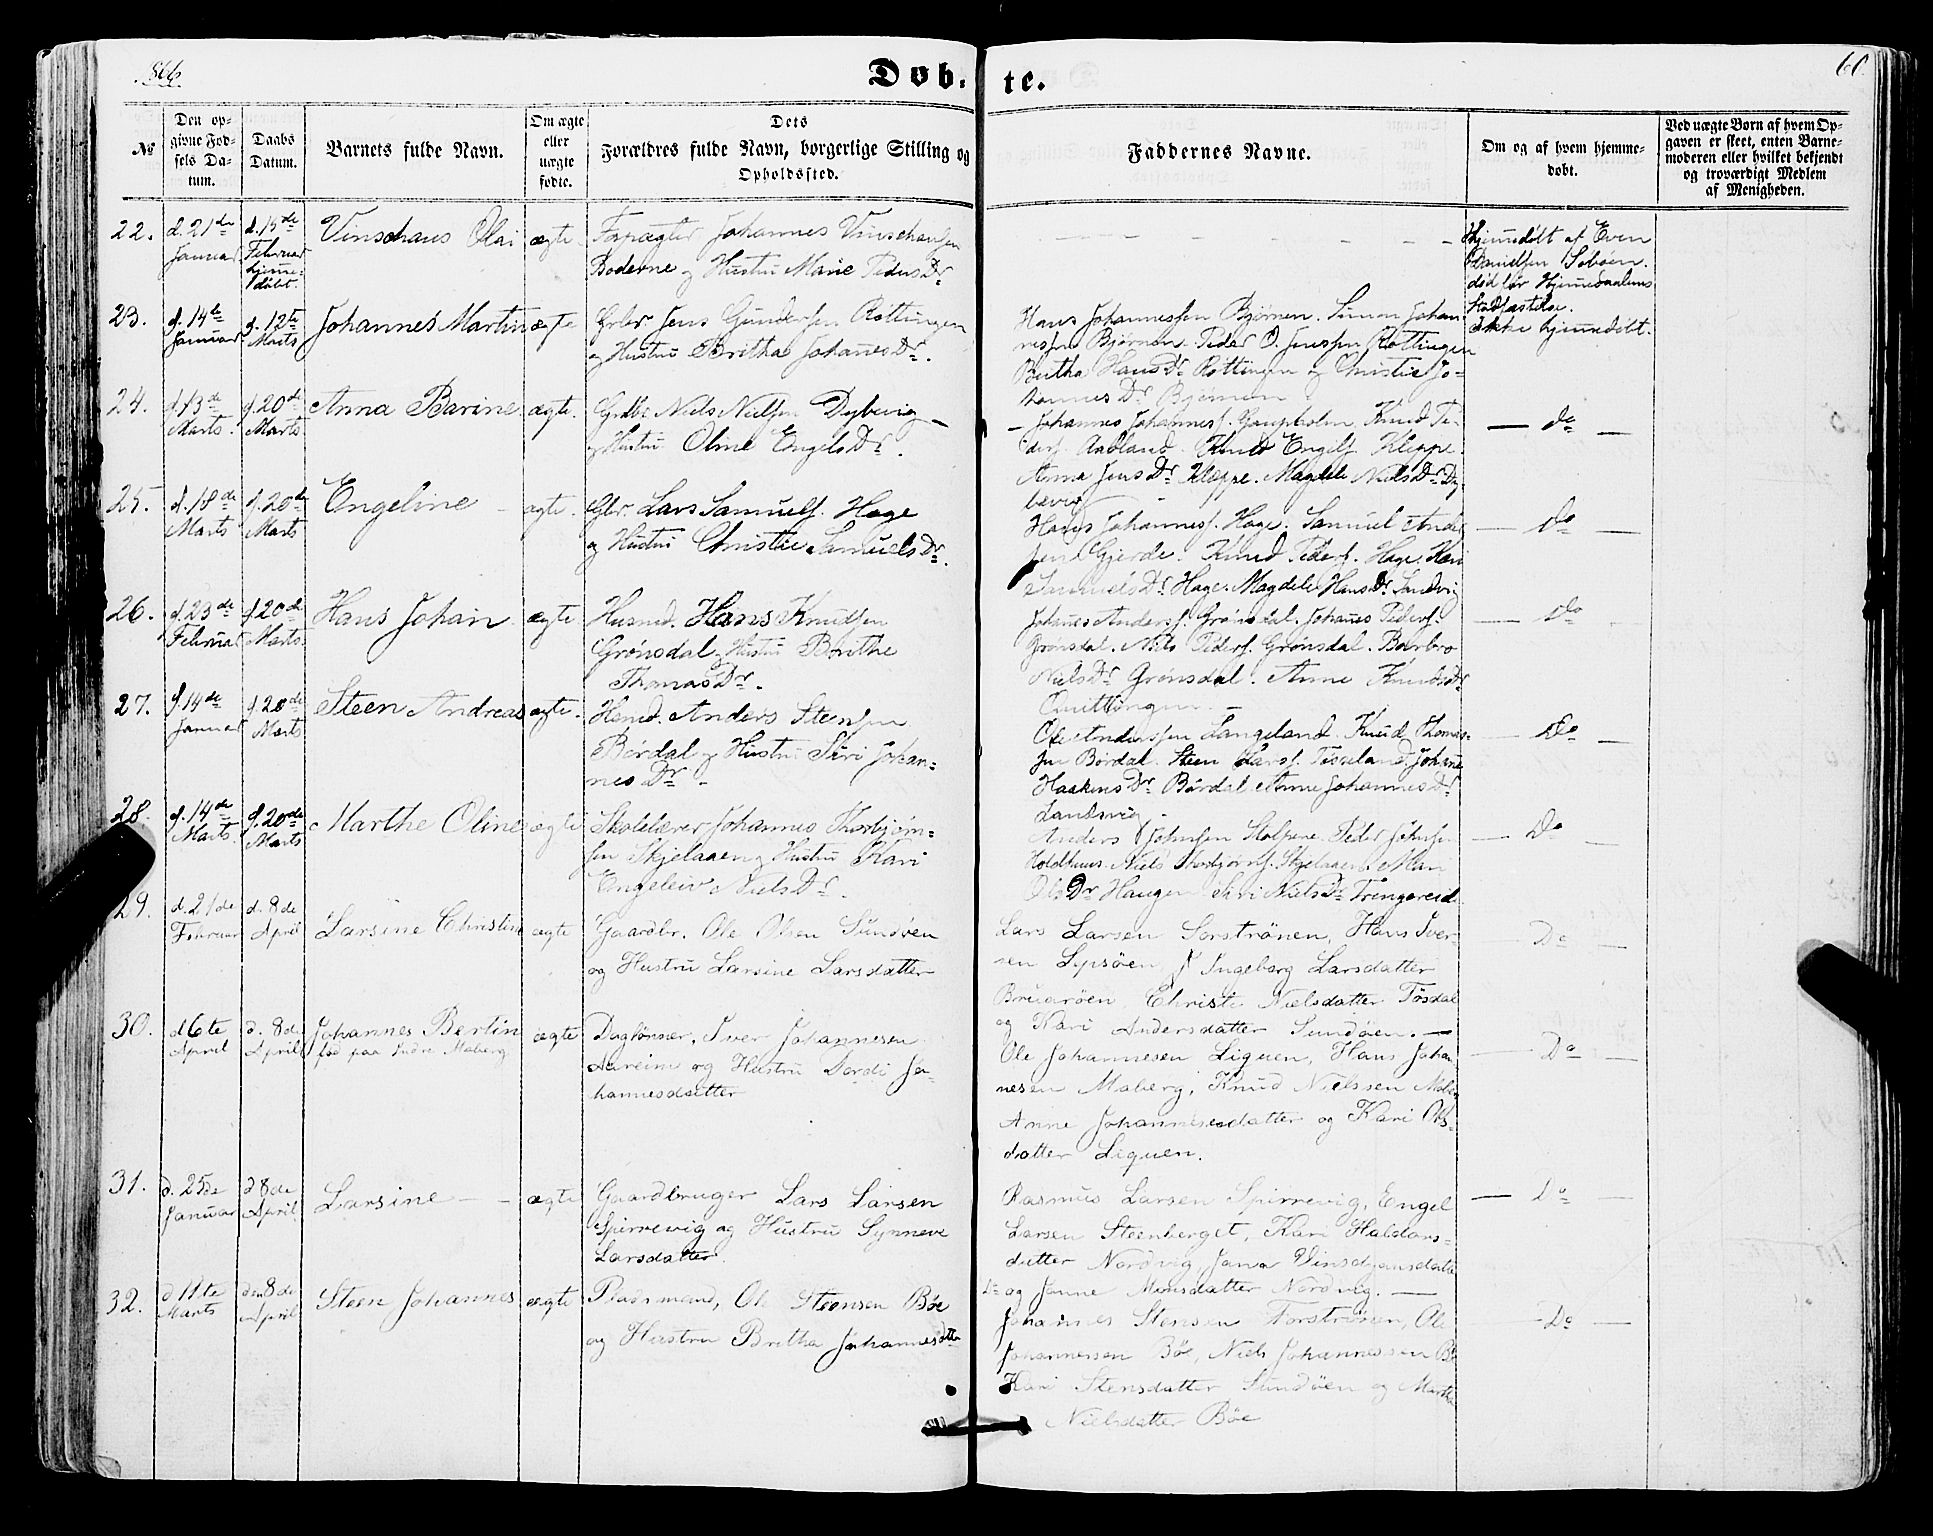 1866.
Døb-
te.
60.
№
Den opgivne Fødsels Datum.
Daabs Datum.
Barnets fulde Navn.
Om ægte eller uægte fødte.
Dets Forældres fulde Navn, borgerlige Stilling og Opholdssted.
Faddernes Navne.
Om og af hvem hjemmedøbt.
Ved uægte Børn af hvem Opgaven er skeet, enten Barnemoderen eller hvilket bekjendt og troværdigt Medlem af Menigheden.
22.
d. 21de
Januar
d. 15de
Februar
hjemme-
døbt.
Vinschaus Olai
ægte
Johannes
Boderne og Hustru Marie PedersDr
Hjemmedøbt af Even
Danielsen
død før Hjemmedaabens
Stadfæstelse.
23.
d. 14de
Januar
d. 12te
Marts
Johannes Martin
ægte
Grbr. Jens Gundersen Røttingen
og Hustru Britha JohanesDr.
Hans Johannessen Bjørnen. Simon Johan-
nessen Bjørnen. Peder O. Jenssen Røttingen
Britha HansDr Røttingen og Christie Jo-
hannesDr Bjørnen
Ikke hjemmedøbt.
24.
d. 13de
Marts.
d. 20de
Marts
Anna Barine
ægte.
Grdbr Niels Nielsen Dybevig
og Hustru Oline EngelsDr.
- Johannes Johanness. Gaupholm, Knud Pe-
ders. Aadland. Knud Engels. Kleppe.
Anna JensDr Kleppe. Magdele NielsDr Dy-
bevig
— do —
25.
d. 18de
Marts
d. 20de
Marts
Engeline
ægte.
Gbr. Lars Samuels. Hage
og Hustru Christie SamuelsDr.
Hans Johanness. Hage. Samuel Anders-
sen Gjerde. Knud Peders. Hage. Kari
SamuelsDr Hage. Magdele HansDr Sandvig
— do —
26.
d. 23de
Februar
d. 20de
Marts
Hans Johan
ægte
Husmd. Hans Knudsen
Grønsdal og Hustru Brithe
ThomasDr.
Johanes Anderss. Grønsdal. Johanes Peders.
Grønsdal. Nils Peders. Grønsdal. Barbro
NielsDr Grønsdal. Anne KnudsDr
— do
27.
d. 14de
Januar
d. 20de
Marts
Steen Andreas
ægte.
Husmd. Anders Steensen
Børdal og Hustru Siri Johan-
nesDr.
Ole Anderssen Langeland. Knud Thomas-
sen Børdal. Steen Larss. Johanne
HaakensDr Børdal Anne JohannesDr
Landsvig
— do —
28.
d. 14de
Marts.
d. 20de
Marts
Marthe Oline
ægte
Skolelærer Johannes Thorbjørn-
sen Skjelaaen og Hustru Kari
Engeleiv NielsDr.
Anders Johnsen Stolpene. Peder Johnsen
Holdhuus. Niels Thorbjørns. Skjelaaen. Mari
OlsDr Haugen Siri NielsDr Trengereid
— Do —
29.
d. 21de
Februar
d. 8de
April
Larsine Christine
ægte
Gaardbr. Ole Olsen Sundøen
og Hustru Larsine Larsdatter
Lars Larsen Sorstrønen, Hans Iver-
sen Lepsøen, Ingeborg Larsdatter
Bruarøen, Christi Nielsdatter Tøsdal
og Kari Andersdatter Sundøen. —
— Do —
30.
d 6te
April
d. 8de
April
Johannes Bertin
fød paa Indre Moberg
ægte
Daglønner, Iver Johannesen
Aareim og Hustru Dordi Jo-
hannesdatter
Ole Johannesen Liquen, Hans Johan-
nesen Moberg, Knud Nielssen Moberg
Anne Johannesesdatter og Kari Ols-
datter Liquen.
— Do —
31.
d. 25de
Januar
d 8de
April
Larsine — -
ægte
Gaardbruger Lars Larsen
Spirrevig og Hustru Synneve
Larsdatter.
Rasmus Larsen Spirrevig, Engel
Larsen Steenberget, Kari Haldors-
datter Nordvig, Jana Vinsdjansdatter
Do og Janne Monsdatter Nordvig. —
— Do —
32.
d 11te
Marts
den 8de
April
Steen Johannes
ægte
Pladsmand, Ole Steensen Bøe
og Hustru Britha Johannesdtr
Johannes Stensen Forstrønen, Ole
Johannessen Bøe, Niels Johannessen Bø
Kari Stensdatter Sundøen og Marthe
Nielsdatter Bøe
— Do —